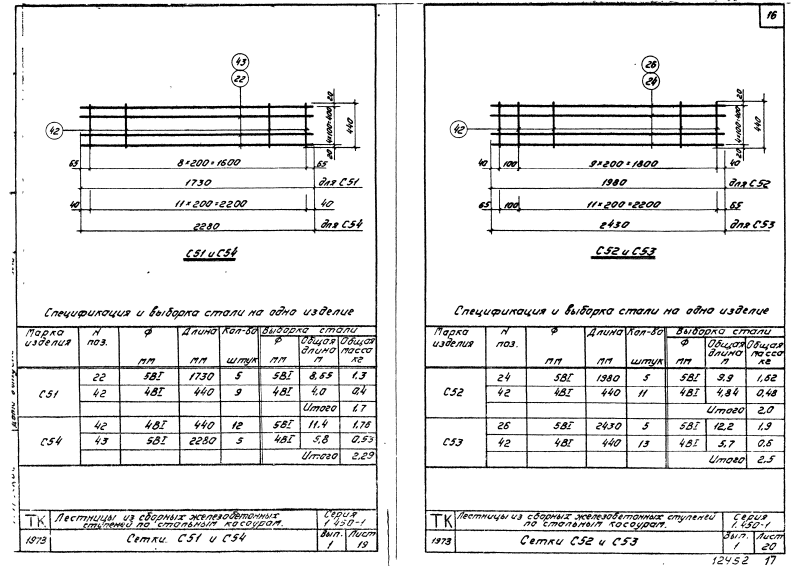 16
43
22
42
20
4×100=400
20
440
65
8×200=1600
65
1730
для С51
40
11×200=2200
40
2280
для С54
С51 и С54
Спецификация и выборка стали на одно изделие
Марка изделия | N поз. | Ф мм | Длина мм | Кол-во штук | Выборка стали
Ф мм | Общая длина м | Общая масса кг
С51 | 22 | 5ВI | 1730 | 5 | 5ВI | 8,65 | 1,3
42 | 4ВI | 440 | 9 | 4ВI | 4,0 | 0,4
Итого | 1,7
С54 | 42 | 4ВI | 440 | 12 | 5ВI | 11.4 | 1,76
43 | 5ВI | 2280 | 5 | 4ВI | 5,8 | 0,53
Итого | 2,29
ТК
1973
Лестницы из сборных железобетонных
ступеней по стальным косоурам.
Серия
1.450-1
Сетки С51 и С54
Вып. 1
Лист 19
26
24
42
20
4×100=400
20
440
40
100
9×200=1800
40
1980
для С52
65
100
11×200=2200
65
2430
для С53
С52 и С53
Спецификация и выборка стали на одно изделие
Марка изделия | N поз. | Ф мм | Длина мм | Кол-во штук | Выборка стали
Ф мм | Общая длина м | Общая масса кг
С52 | 24 | 5ВI | 1980 | 5 | 5ВI | 9.9 | 1,62
42 | 4ВI | 440 | 11 | 4ВI | 4,84 | 0,48
Итого | 2.0
С53 | 26 | 5ВI | 2430 | 5 | 5ВI | 12,2 | 1,9
42 | 4ВI | 440 | 13 | 4ВI | 5,7 | 0,6
Итого | 2.5
ТК
1973
Лестницы из сборных железобетонных ступеней
по стальным косоурам.
Серия
1.450-1
Сетки С52 и С53
Вып. 1
Лист 20
12452 17